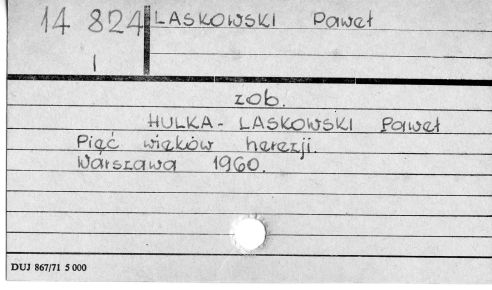 14 824 LASKOWSKI Paweł
I
zob.
HULKA- LASKOWSKI Paweł
Pięć wieków herezji.
Warszawa 1960.
DUJ 867/71 5 000